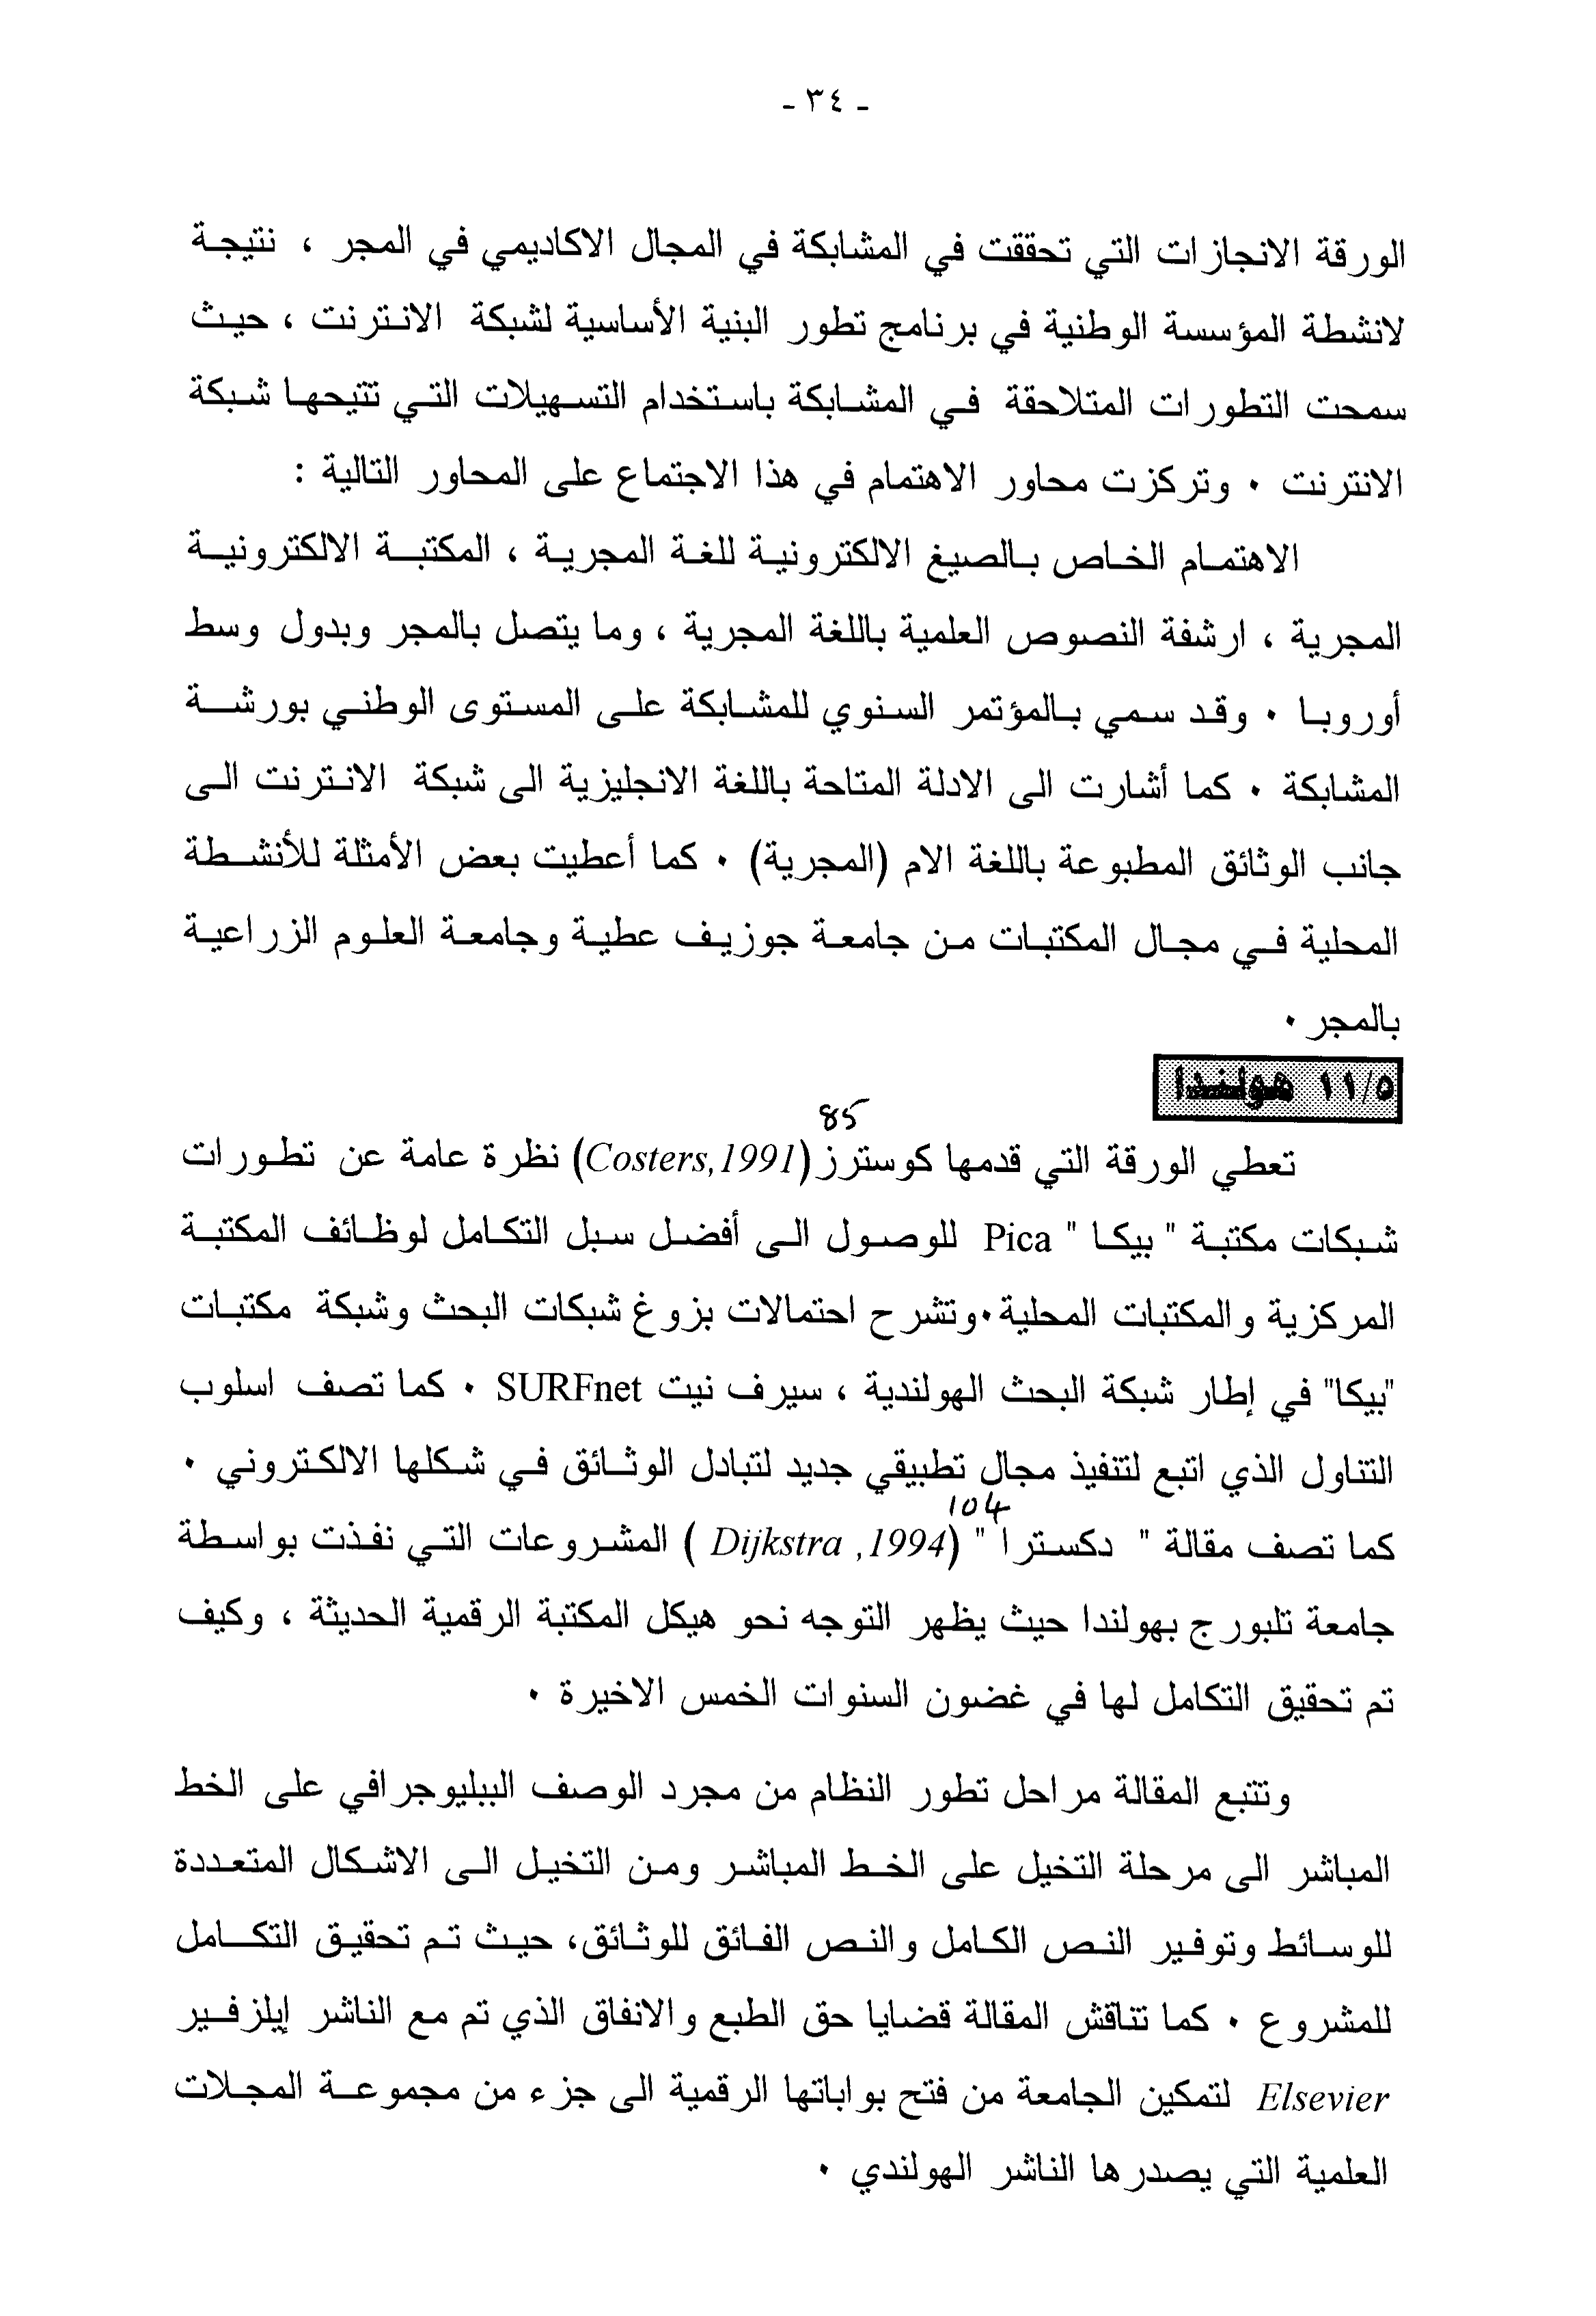 - ٣٤ -
الورقة الانجازات التي تحققت في المشابكة في المجال الاكاديمي في المجر ، نتيجة
لانشطة المؤسسة الوطنية في برنامج تطور البنية الأساسية لشبكة الانترنت ، حيث
سمحت التطورات المتلاحقة في المشابكة باستخدام التسهيلات التي تتيحها شبكة
الانترنت ٠ وتركزت محاور الاهتمام في هذا الاجتماع على المحاور التالية :
الاهتمام الخاص بالصيغ الالكترونية للغة المجرية ، المكتبة الالكترونية
المجرية ، ارشفة النصوص العلمية باللغة المجرية ، وما يتصل بالمجر وبدول وسط
أوروبا ٠ وقد سمي بالمؤتمر السنوي للمشابكة على المستوى الوطني بورشة
المشابكة ٠ كما أشارت الى الادلة المتاحة باللغة الانجليزية الى شبكة الانترنت الى
جانب الوثائق المطبوعة باللغة الام (المجرية) ٠ كما أعطيت بعض الأمثلة للأنشطة
المحلية في مجال المكتبات من جامعة جوزيف عطية وجامعة العلوم الزراعية
بالمجر ٠
١١/٥ هولندا
85
تعطي الورقة التي قدمها كوسترز (Costers,1991) نظرة عامة عن تطورات
شبكات مكتبة " بيكا " Pica للوصول الى أفضل سبل التكامل لوظائف المكتبة
المركزية والمكتبات المحلية٠وتشرح احتمالات بزوغ شبكات البحث وشبكة مكتبات
"بيكا" في إطار شبكة البحث الهولندية ، سيرف نيت SURFnet ٠ كما تصف اسلوب
التناول الذي اتبع لتنفيذ مجال تطبيقي جديد لتبادل الوثائق في شكلها الالكتروني ٠
104
كما تصف مقالة " دكسترا " (Dijkstra ,1994 ) المشروعات التي نفذت بواسطة
جامعة تلبورج بهولندا حيث يظهر التوجه نحو هيكل المكتبة الرقمية الحديثة ، وكيف
تم تحقيق التكامل لها في غضون السنوات الخمس الاخيرة ٠
وتتبع المقالة مراحل تطور النظام من مجرد الوصف الببليوجرافي على الخط
المباشر الى مرحلة التخيل على الخط المباشر ومن التخيل الى الاشكال المتعددة
للوسائط وتوفير النص الكامل والنص الفائق للوثائق، حيث تم تحقيق التكامل
للمشروع ٠ كما تناقش المقالة قضايا حق الطبع والانفاق الذي تم مع الناشر إيلزفير
Elsevier لتمكين الجامعة من فتح بواباتها الرقمية الى جزء من مجموعة المجلات
العلمية التي يصدرها الناشر الهولندي ٠